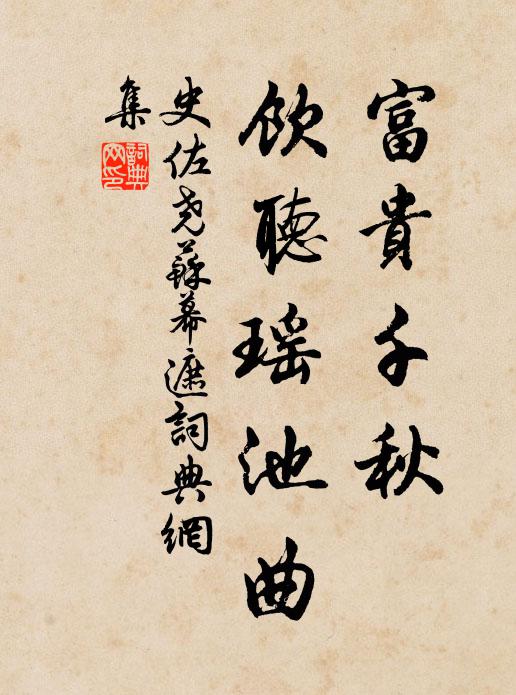 富貴千秋
飲聽瑶池曲
史佐堯蘇幕遮詞典網
集
詞典
網印